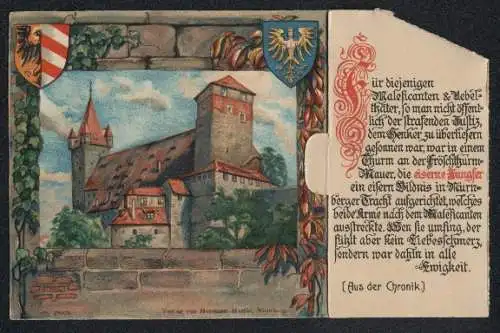 Für diejenigen
Maleficanten & Uebel-
thäter, so man nicht öffent-
lich der strafenden Justiz,
dem Henker zu überliefern
gesonnen war, war in einem
Thurm an der Fröschthurm-
Mauer, die eiserne Jungfer
ein eisern Bildnis in Nürn-
berger Tracht aufgerichtet, welches
beide Arme nach dem Maleficanten
ausstreckte. Wen sie umfing, der
fühlt aber kein Liebesschmerz,
sondern war dahin in alle
Ewigkeit.
[Aus der Chronik.]
Verlag von Hermann Martin, Nürnberg.